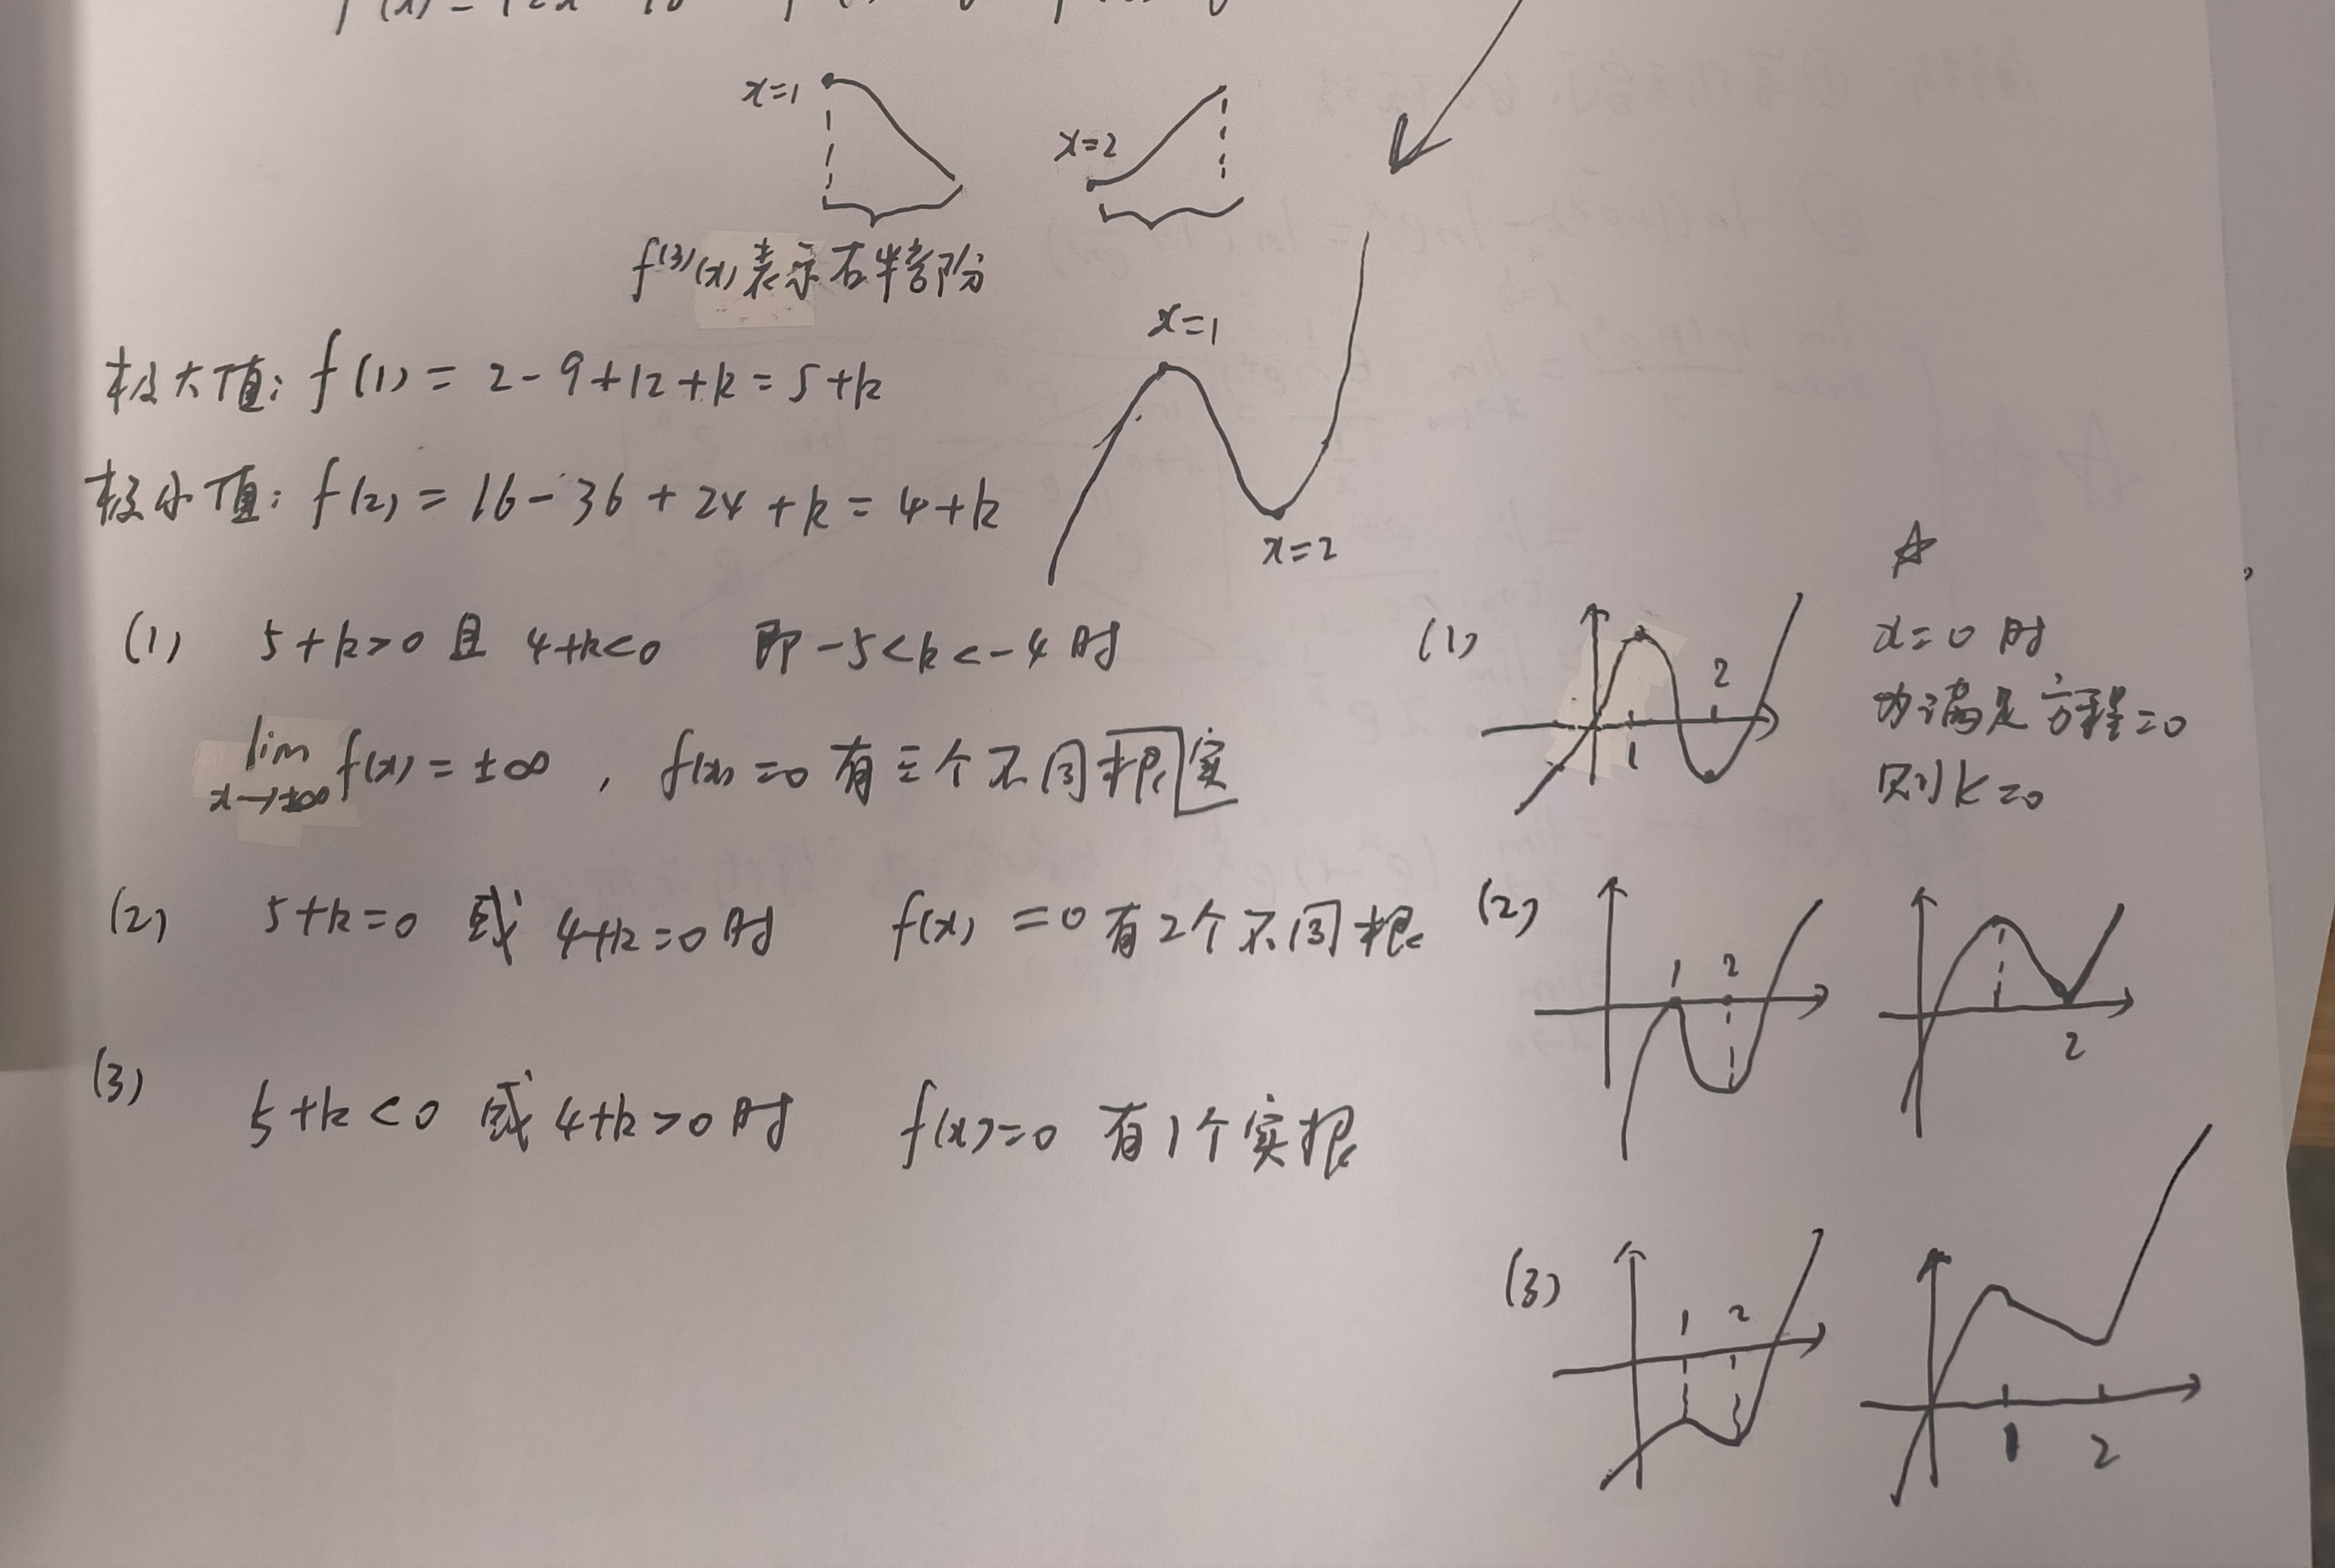 x=1
x=2
f⁽³⁾(x) 表示右半部分
x=1
极大值: f(1) = 2-9+12+k = 5+k
极小值: f(2) = 16-36+24+k = 4+k
x=2
(1) 5+k>0 且 4+k<0 即 -5<k<-4 时
lim x→±∞ f(x) = ±∞ , f(x)=0 有三个不同根实
(1) 1 2
☆
x=0 时
满足方程=0
则 k=0
(2) 5+k=0 或 4+k=0 时 f(x) =0 有2个不同根
(2) 1 2 2
(3) 5+k<0 或 4+k>0 时 f(x)=0 有1个实根
(3) 1 2 1 2